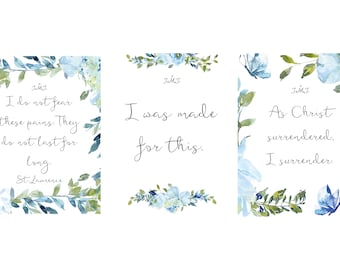 I do not fear
these pains. They
do not last for
long.
St. Lawrence
I was made
for this.
As Christ
surrendered,
I surrender